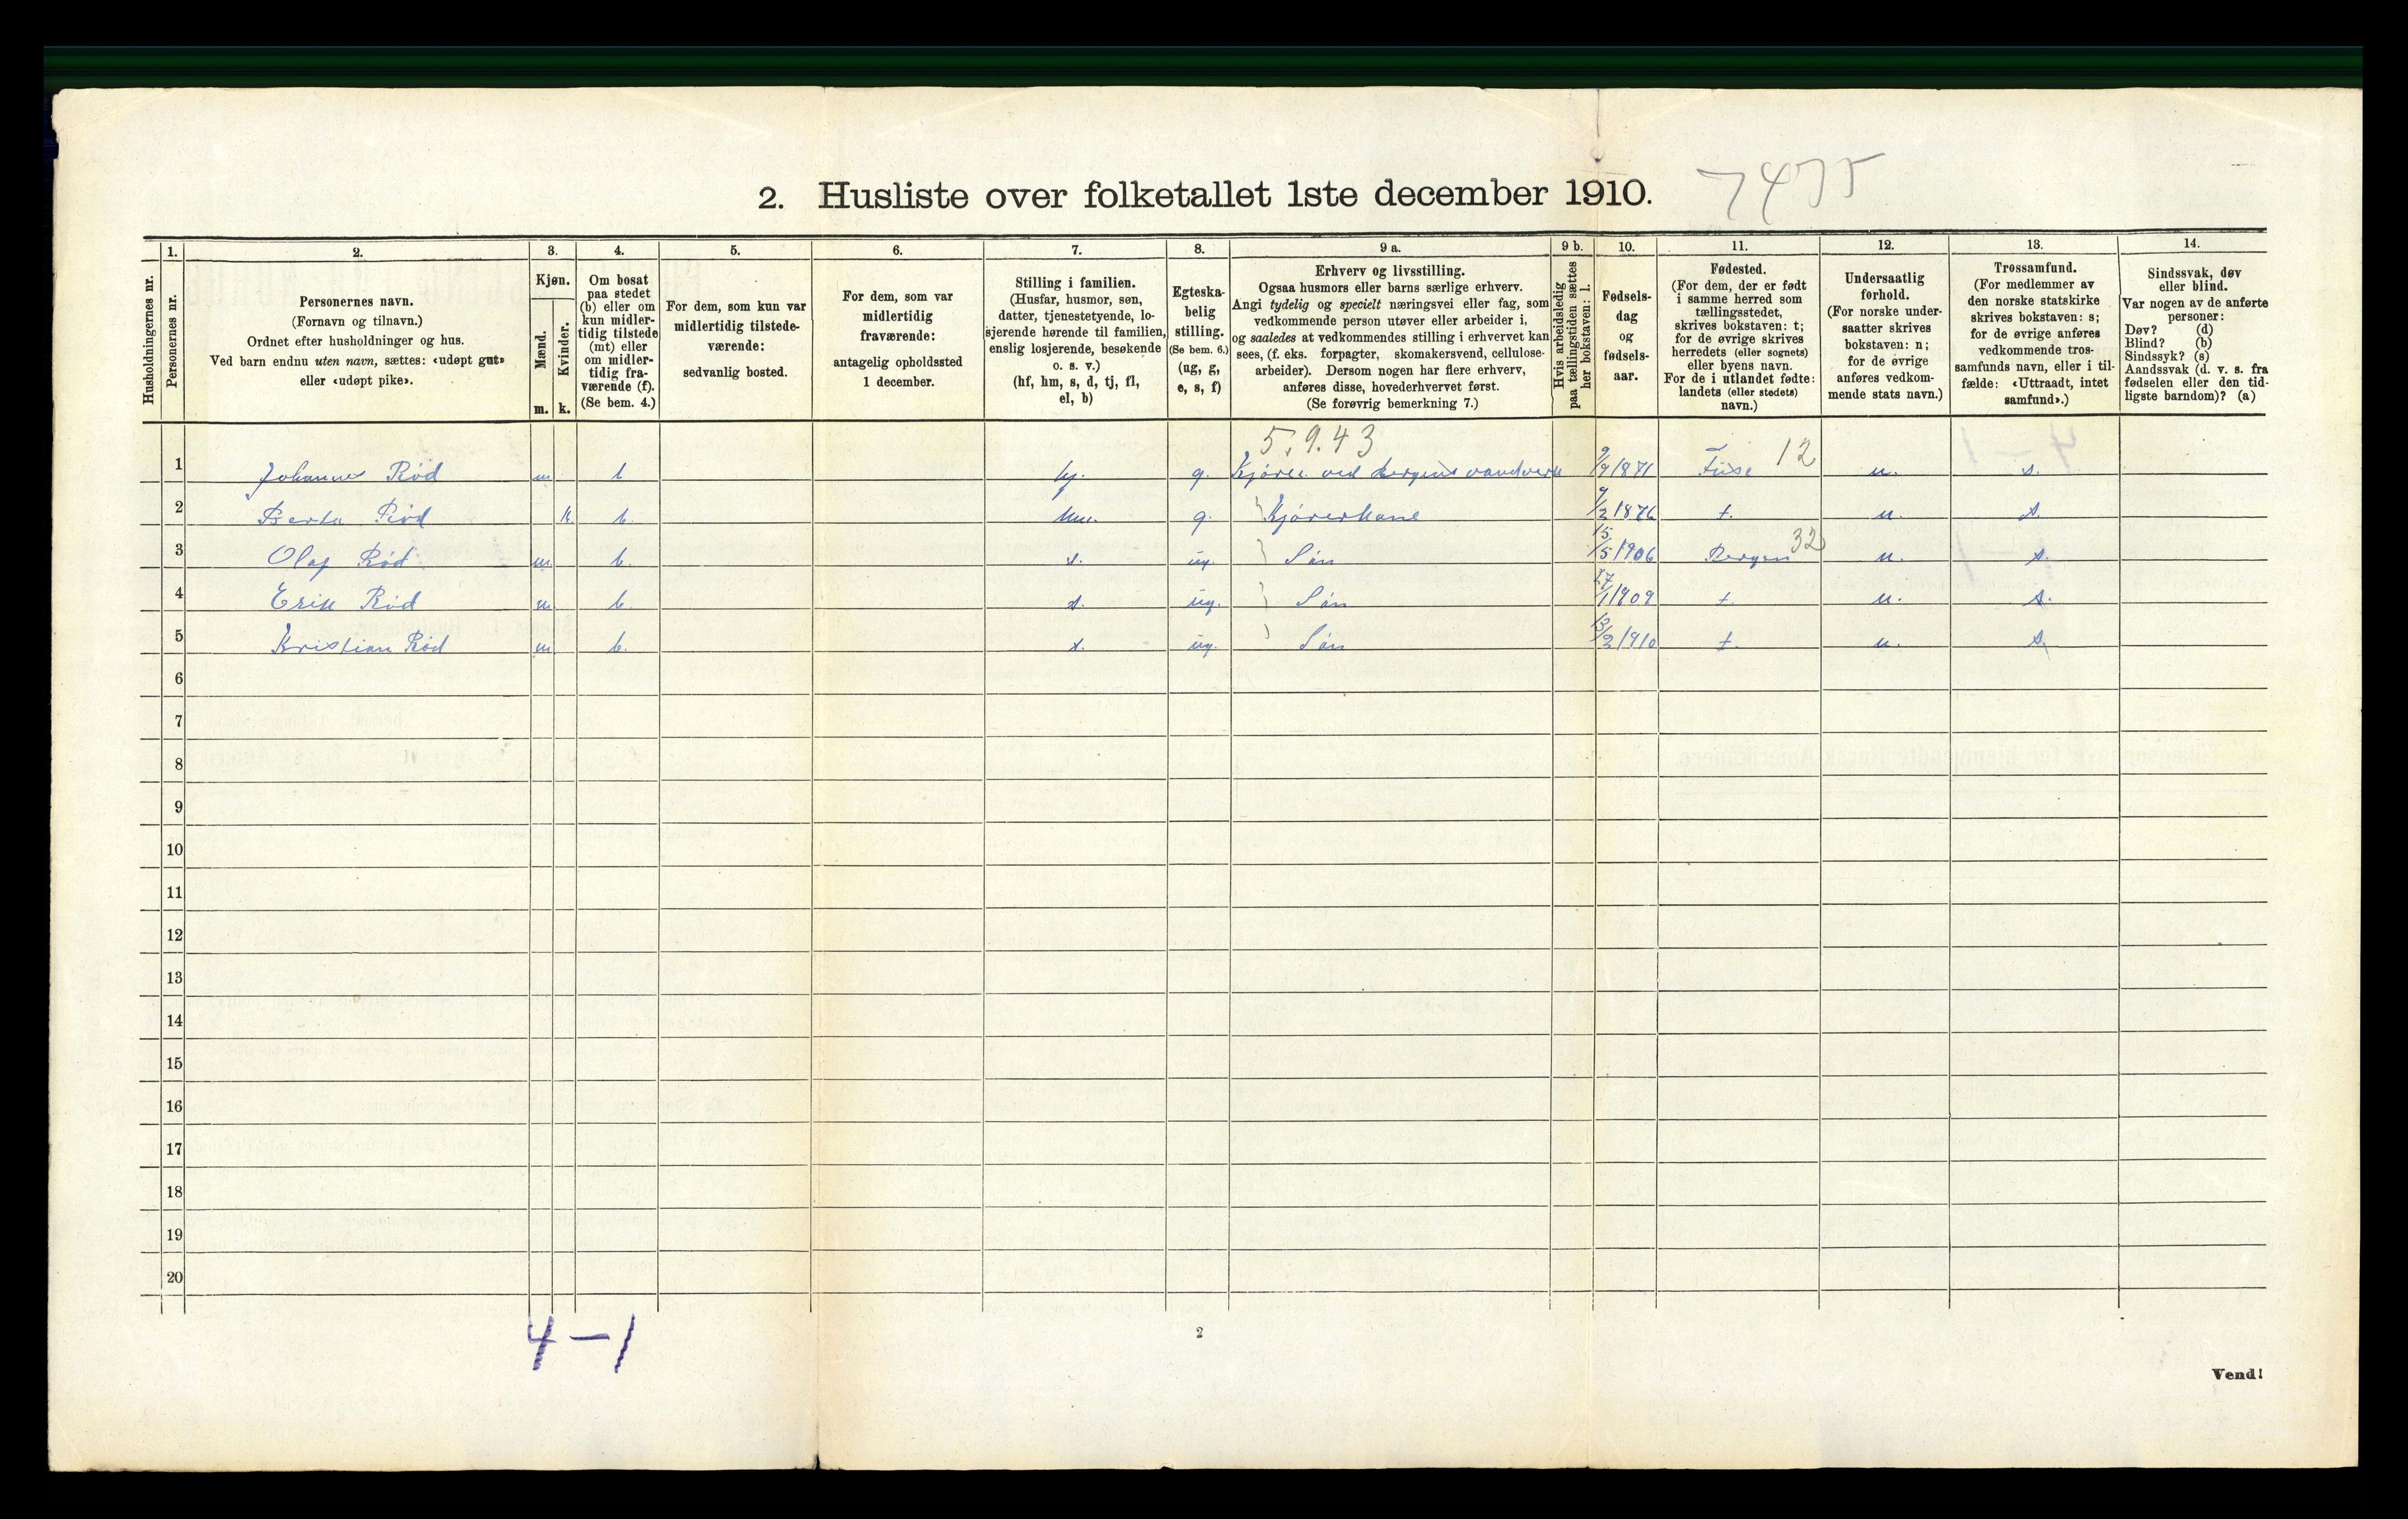 2. Husliste over folketallet 1ste december 1910.
7475
Husholdningernes nr.
1.
Personernes nr.
2.
Personernes navn.
(Fornavn og tilnavn.)
Ordnet efter husholdninger og hus.
Ved barn endnu uten navn, sættes: «udøpt gut»
eller «udøpt pike».
3.
Kjøn.
Mænd.
m.
Kvinder.
k.
4.
Om bosat
paa stedet
(b) eller om
kun midler-
tidig tilstede
(mt) eller
om midler-
tidig fra-
værende (f).
(Se bem. 4.)
5.
For dem, som kun var
midlertidig tilstede-
værende:
sedvanlig bosted.
6.
For dem, som var
midlertidig
fraværende:
antagelig opholdssted
1 december.
7.
Stilling i familien.
(Husfar, husmor, søn,
datter, tjenestetyende, lo-
sjerende hørende til familien,
enslig losjerende, besøkende
o. s. v.)
(hf, hm, s, d, tj, fl,
el, b)
8.
Egteska-
belig
stilling.
(Se bem. 6.)
(ug, g,
e, s, f)
9 a.
Erhverv og livsstilling.
Ogsaa husmors eller barns særlige erhverv.
Angi tydelig og specielt næringsvei eller fag, som
vedkommende person utøver eller arbeider i,
og saaledes at vedkommendes stilling i erhvervet kan
sees, (f. eks. forpagter, skomakersvend, cellulose-
arbeider). Dersom nogen har flere erhverv,
anføres disse, hovederhvervet først.
(Se forøvrig bemerkning 7.)
9 b.
Hvis arbeidsledig
paa tællingstiden sættes
her bokstaven: l.
10.
Fødsels-
dag
og
fødsels-
aar.
11.
Fødested.
(For dem, der er født
i samme herred som
tællingsstedet,
skrives bokstaven: t;
for de øvrige skrives
herredets (eller sognets)
eller byens navn.
For de i utlandet fødte:
landets (eller stedets)
navn.)
12.
Undersaatlig
forhold.
(For norske under-
saatter skrives
bokstaven: n;
for de øvrige
anføres vedkom-
mende stats navn.)
13.
Trossamfund.
(For medlemmer av
den norske statskirke
skrives bokstaven: s;
for de øvrige anføres
vedkommende tros-
samfunds navn, eller i til-
fælde: «Uttraadt, intet
samfund».)
14.
Sindssvak, døv
eller blind.
Var nogen av de anførte
personer:
Døv? (d)
Blind? (b)
Sindssyk? (s)
Aandssvak (d. v. s. fra
fødselen eller den tid-
ligste barndom)? (a)
5.9.43
1 Johannes Rød m b g. Kjører ved Bergens vandverk 9/9 1871 Fuse 12 n. s.
2 Berta Rød k. b. hm. g. Kjørerkone 9/2 1876 t. n. s.
3 Olaf Rød m b. s. ug. Søn 15/5 1906 Bergen 32 n. s.
4 Erik Rød m b. s. ug. Søn 27/1 1909 t. n. s.
5 Kristian Rød m b. s. ug. Søn 13/2 1910 t. n. s.
6
7
8
9
10
11
12
13
14
15
16
17
18
19
20
4–1
2
Vend!